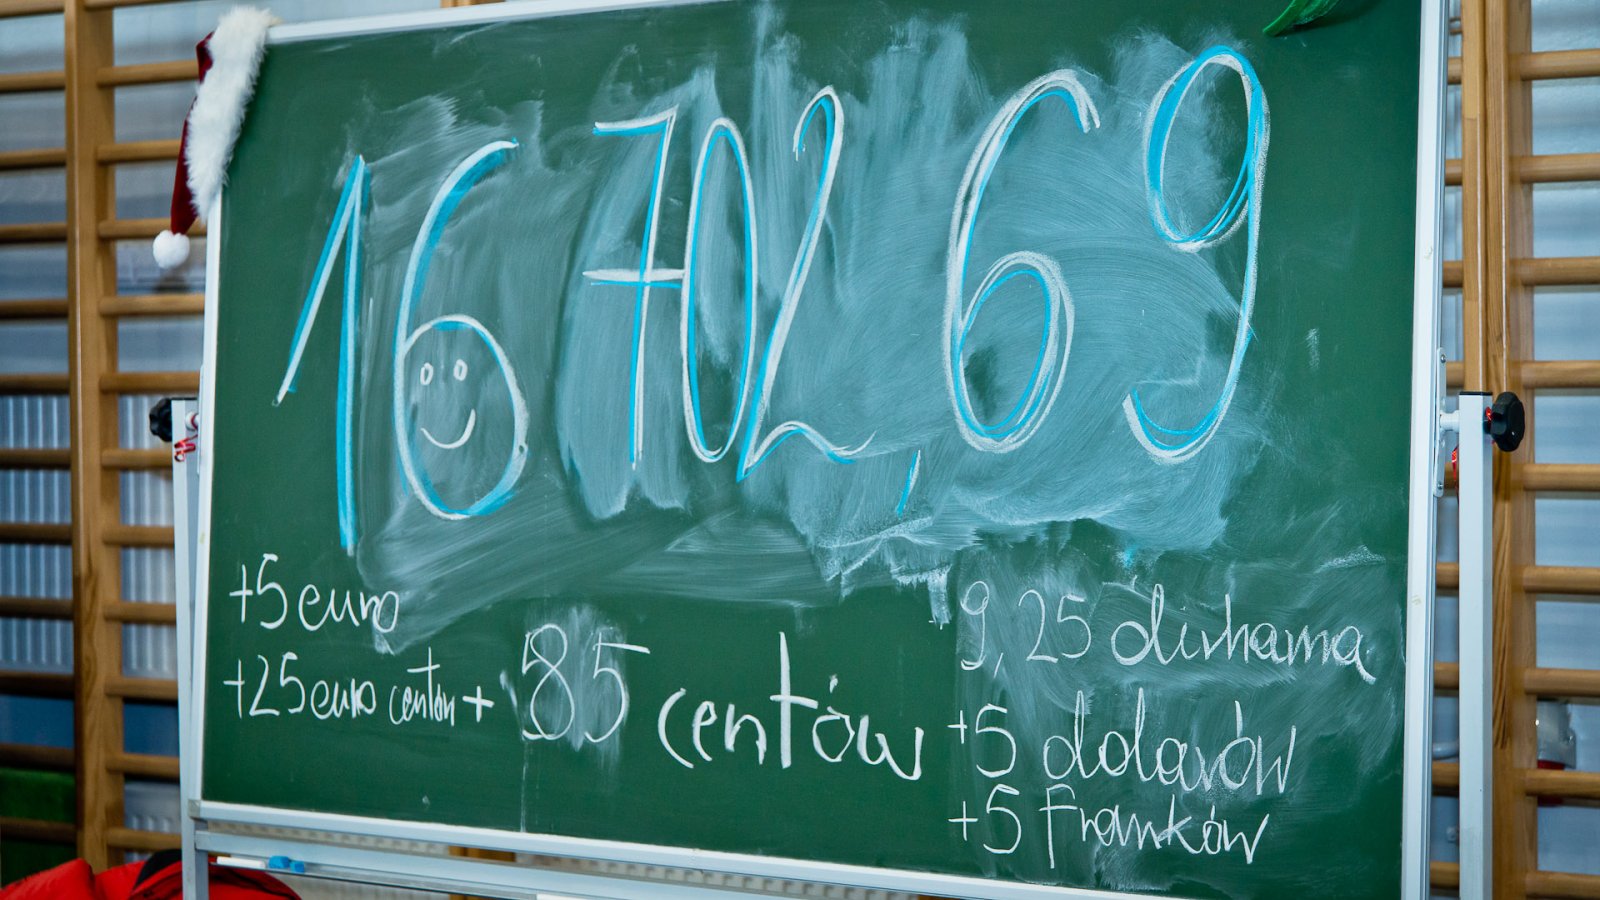 16 702,69
+5 euro
+25 euro centów + 85 centów
9,25 dirhama
+5 dolarów
+5 franków